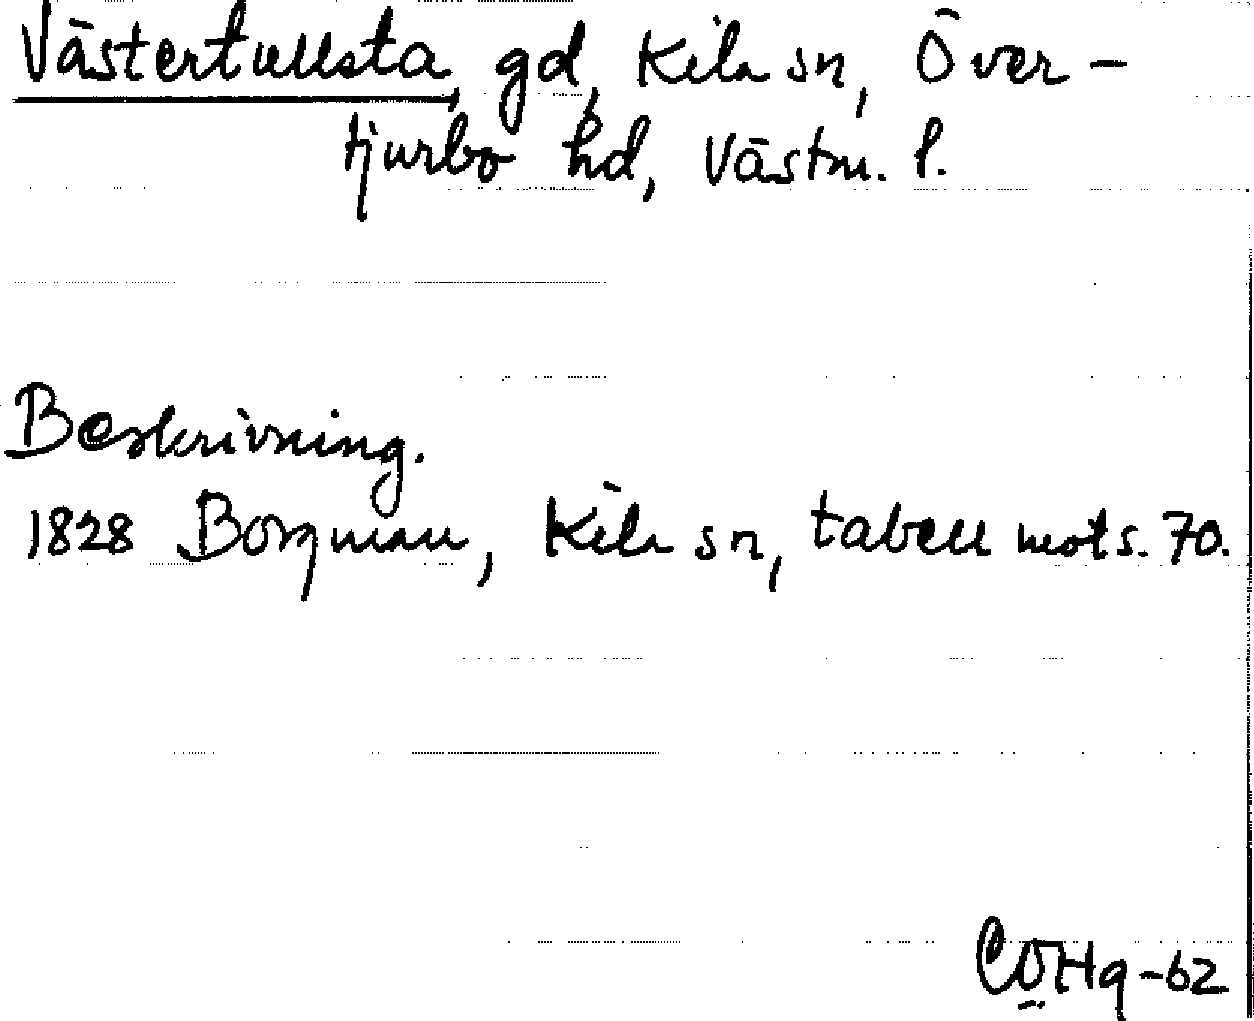 Västertullsta, gd, Kila sn, Över-
tjurbo hd, Västm. l.
Beskrivning.
1828 Borgman, Kila sn, tabell mots. 70.
-62